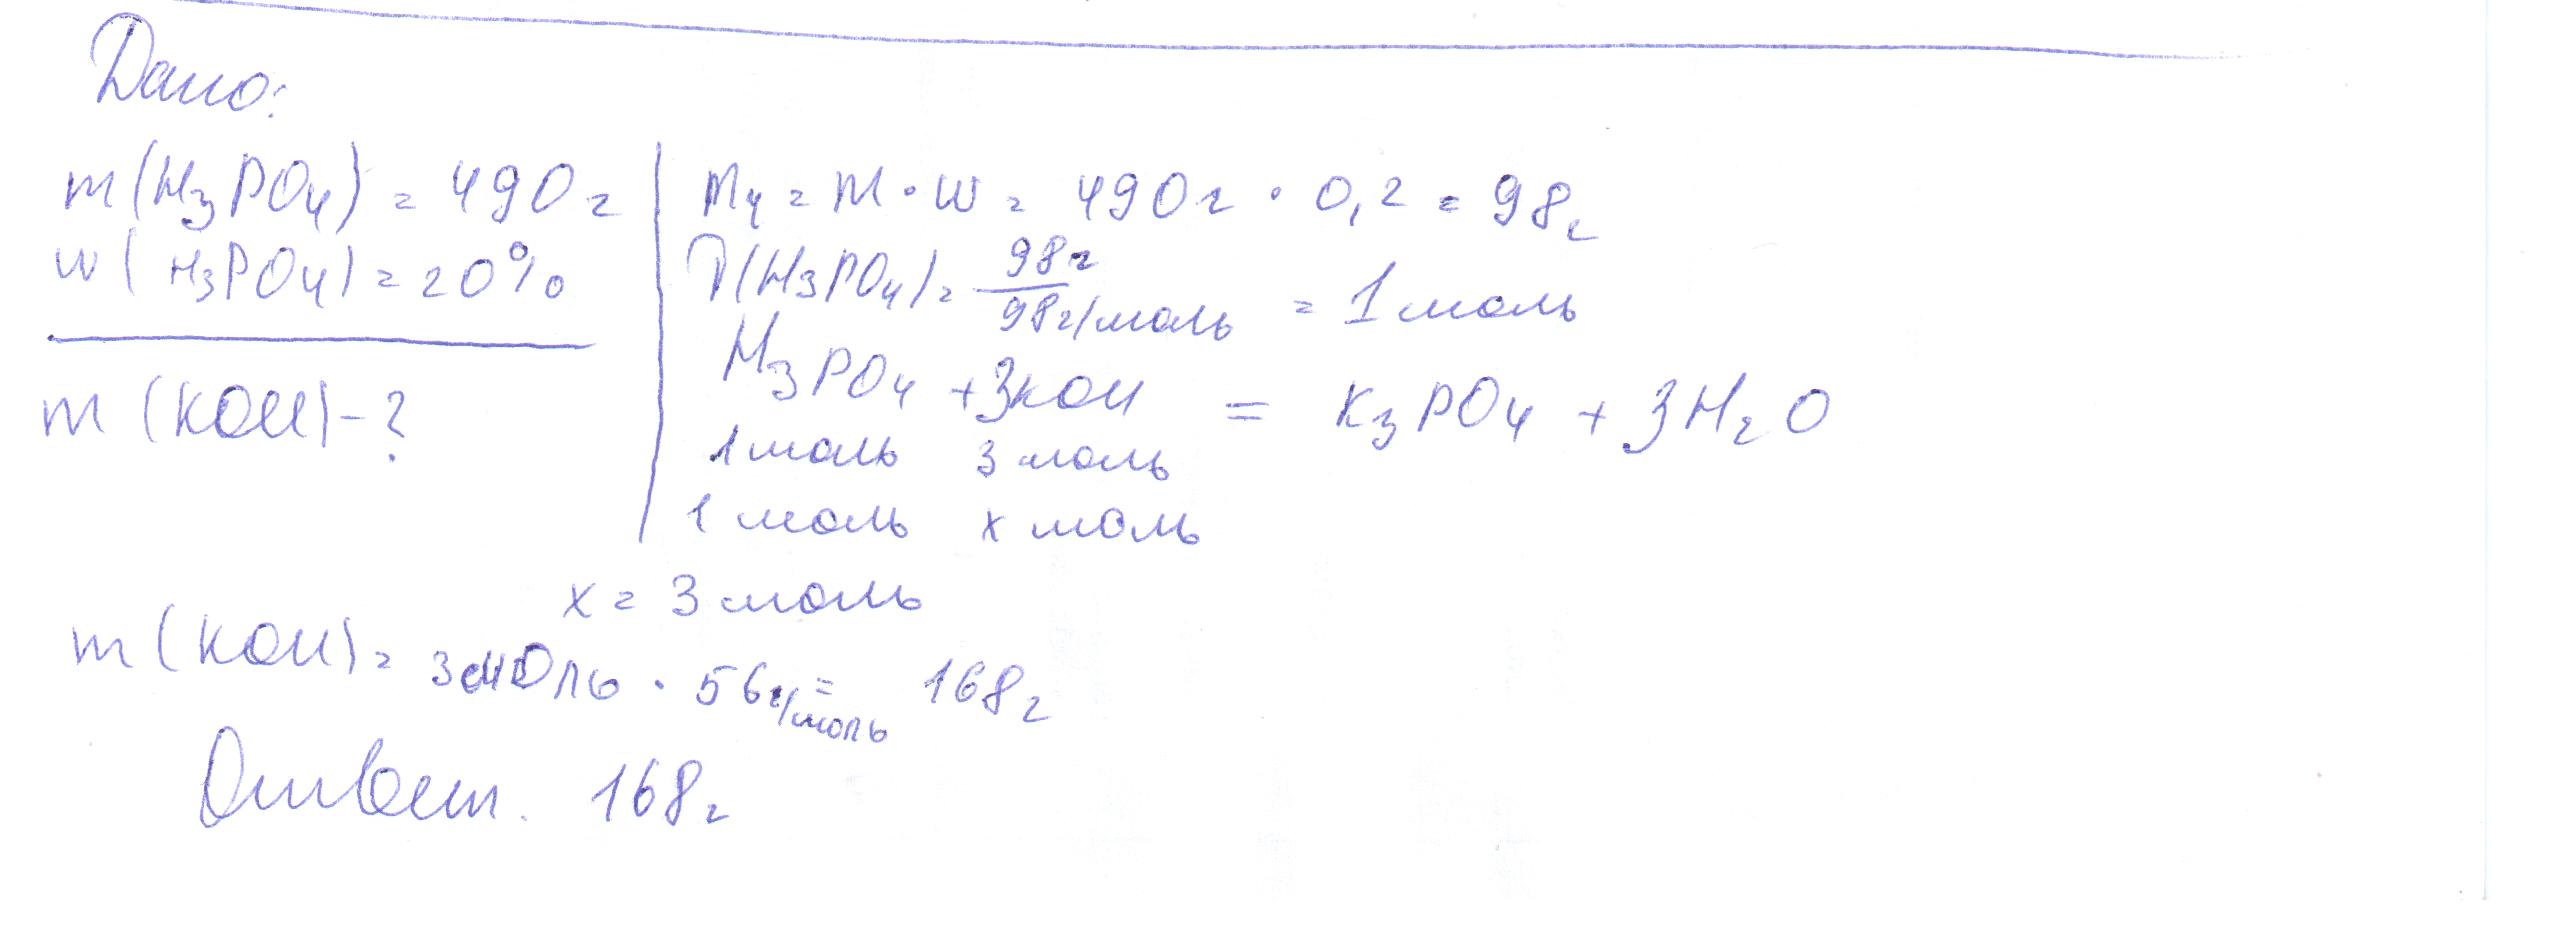 Дано:
m(H₃PO₄) = 490 г
w(H₃PO₄) = 20%
m(KOH) - ?
mч = m · w = 490 г · 0,2 = 98 г
ν(H₃PO₄) = 98 г / 98 г/моль = 1 моль
H₃PO₄ + 3KOH = K₃PO₄ + 3H₂O
1 моль 3 моль
1 моль x моль
x = 3 моль
m(KOH) = 3 моль · 56 г/моль = 168 г
Ответ. 168 г